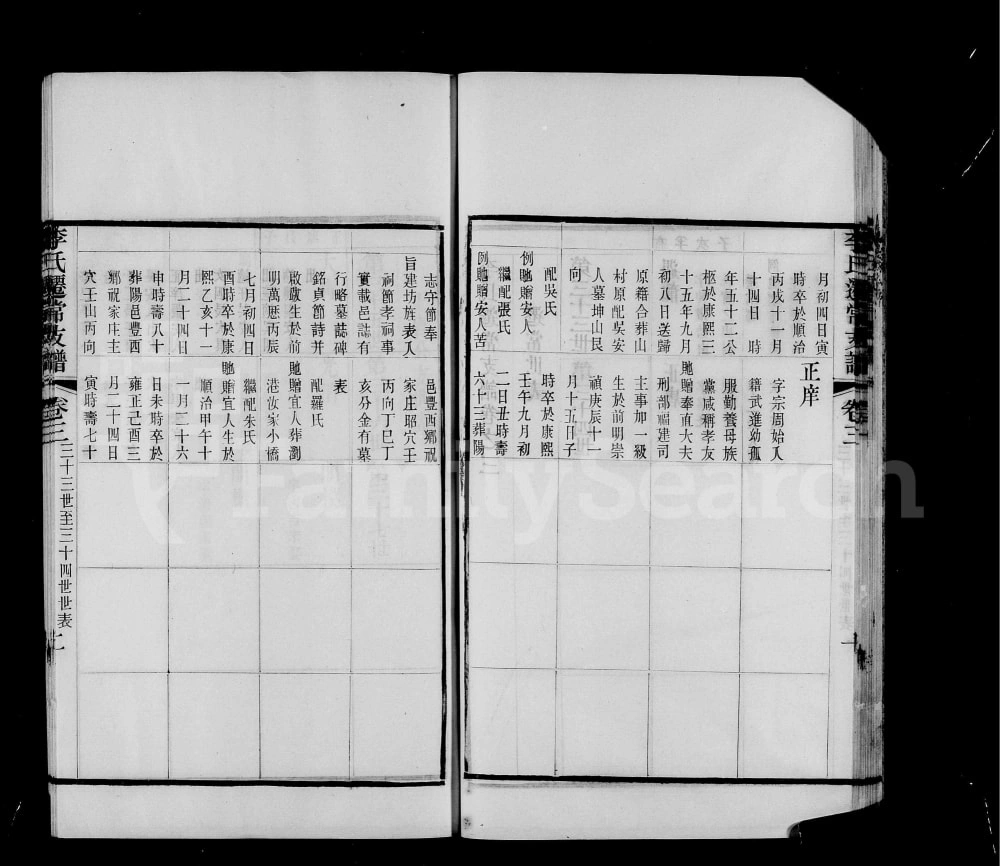 月初四日寅
時卒於順治
丙戌十一月
十四日　時
年五十二公
柩於康熙三
十五年九月
初八日送歸
原籍合葬山
村原配吳安
人墓坤山艮
向
配吳氏
例貤贈安人
繼配張氏
例貤贈安人苦
正庠
字宗周始入
籍武進幼孤
服勤養母族
黨戚稱孝友
貤贈奉直大夫
刑部福建司
主事加一級
生於前明崇
禎庚辰十一
月十五日子
時卒於康熙
壬午九月初
二日丑時壽
六十三葬陽
志守節奉
旨建坊旌表入
祠節孝祠事
實載邑誌有
行略墓誌碑
銘貞節詩并
啟敬生於前
明萬歷丙辰
七月初四日
酉時卒於康
熙乙亥十一
月二十四日
申時壽八十
葬陽邑豐西
鄉祝家庄主
穴壬山丙向
邑豐西鄉祝
家庄耶穴壬
丙向丁巳丁
亥分金有墓
表
配羅氏
貤贈宜人葬瀏
港汝家小橋
繼配朱氏
貤贈宜人生於
順治甲午十
一月二十六
日未時卒於
雍正己酉三
月二十四日
寅時壽七十
李氏遷常支譜　卷三　三十三世至三十四世世表　二
FamilySearch